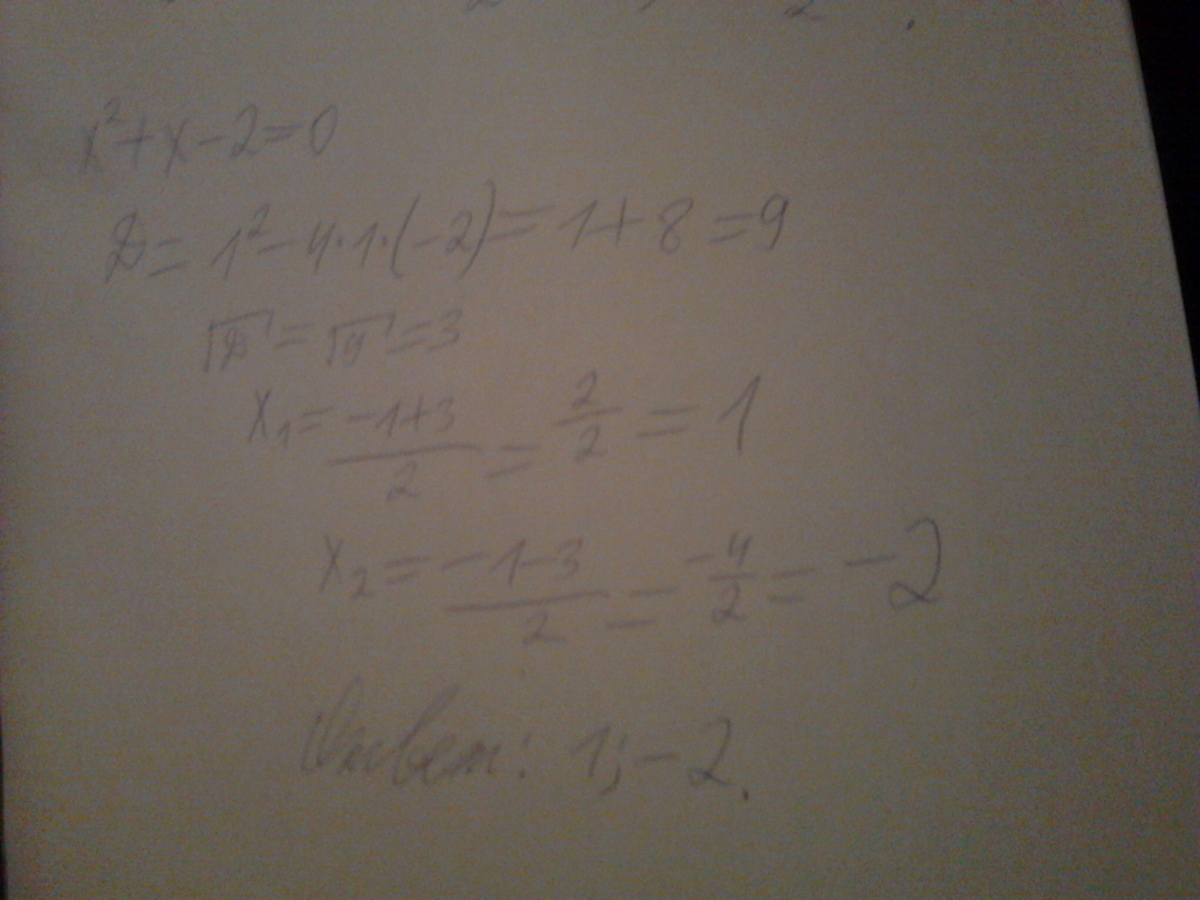 x²+x-2=0
D=1²-4·1·(-2)=1+8=9
√D=√9=3
x₁=(-1+3)/2=2/2=1
x₂=(-1-3)/2=-4/2=-2
Ответ: 1;-2.